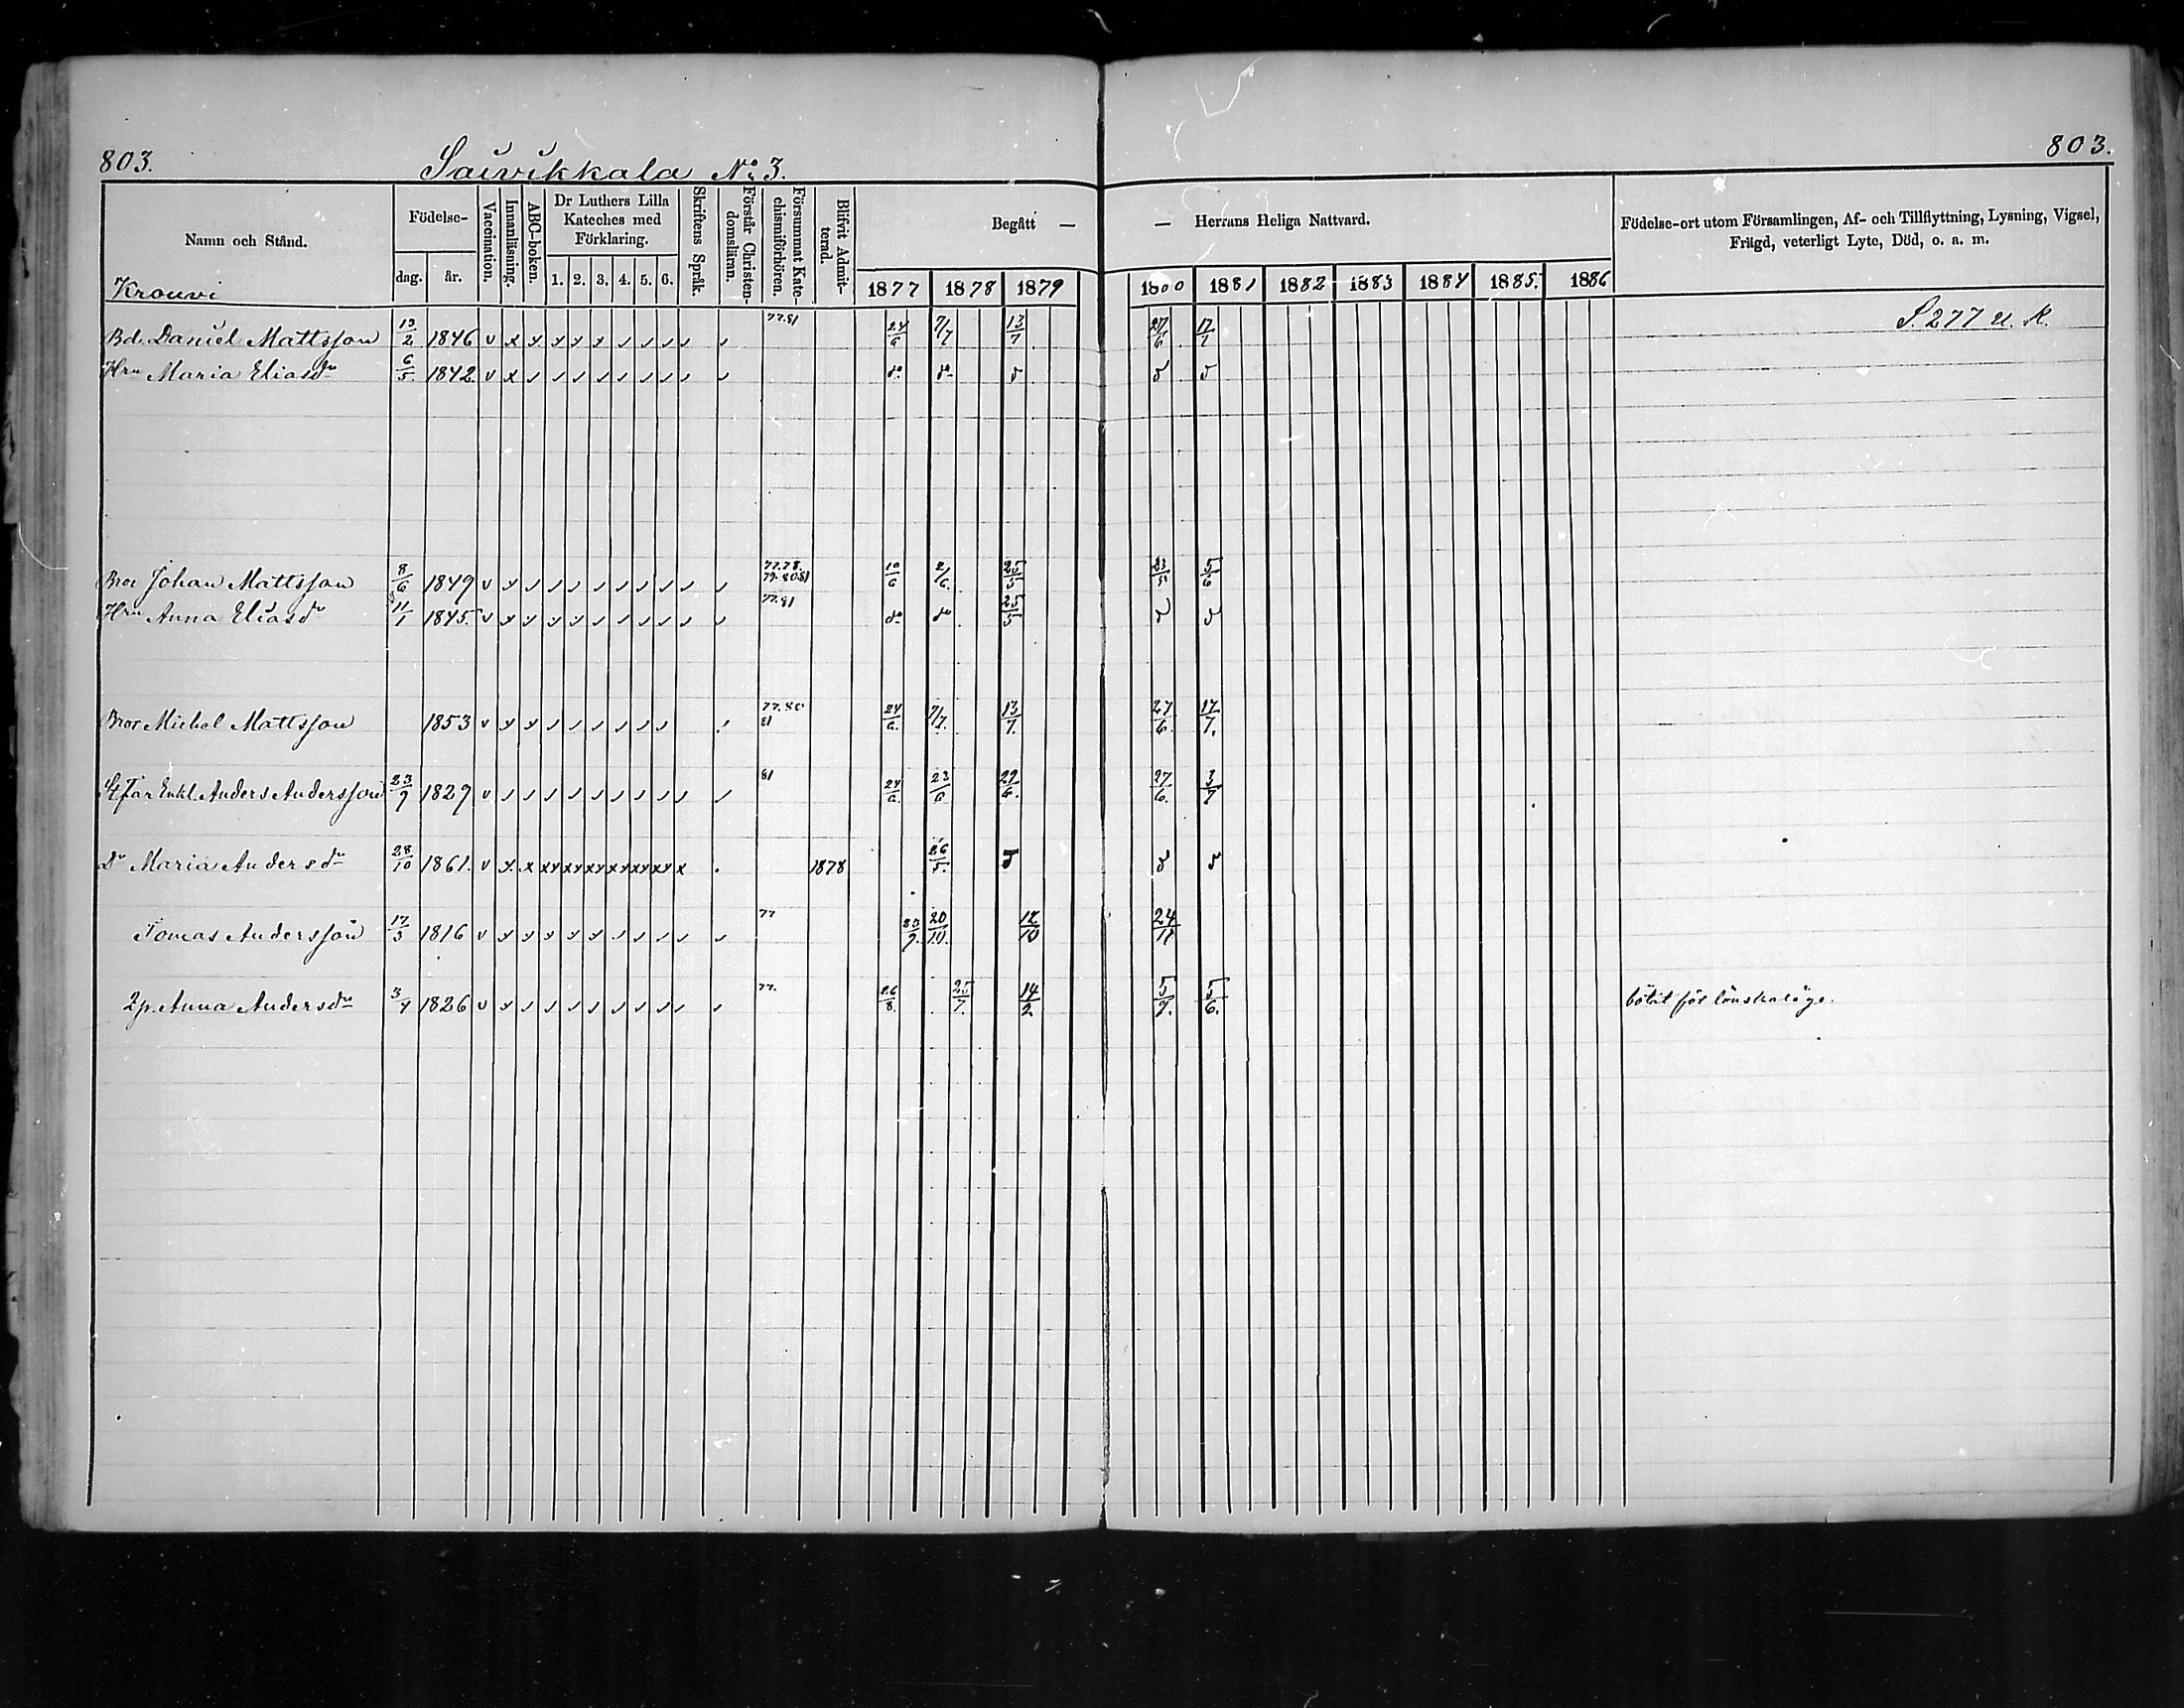 803. Saivikkala No 3. 803.
Namn och Stånd. Födelse- dag. år. Vaccination. Innanläsning. ABC-boken. Dr Luthers Lilla Kateches med Förklaring. 1. 2. 3. 4. 5. 6. Skriftens Språk. Förstår Christendomsläran. Försummat Katechismiförhören. Blifvit Admitterad. Begått — — Herrans Heliga Nattvard. Födelse-ort utom Församlingen, Af- och Tillflyttning, Lysning, Vigsel, Frägd, veterligt Lyte, Död, o. a. m.
Krouvi 1877 1878 1879 1880 1881 1882 1883 1884 1885. 1886
Bd. Daniel Mattsson 13/2 1846 v x x x x x 77.81 24/6 7/7 13/7 27/6 17/7 S. 277 u. K.
Hru Maria Eliasdr 6/5. 1842. v x do do
Bror Johan Mattsson 8/6 1849 v 77.78. 79.80.81 10/6 2/6. 25/5 23/5 5/6
Hru Anna Eliasdr 11/1 1845. v 77.81 do do 25/5
Bror Michel Mattsson 1853 v 77.80 81 24/6. 7/7. 13/7. 27/6. 17/7.
Stfar Enkl. Anders Andersson 23/9 1829 v 81 24/6. 23/6 29/6. 27/6. 3/7
Dr Maria Andersdr 28/10 1861. v x. x xx xx xx xx xx xx x 1878 26/5.
Tomas Andersson 17/3 1816 v 77 20/10. 12/10 24/11
2p. Anna Andersdr 1826 v 77. 26/8. 25/7. 14/2 5/9. 5/6. bötat för lönskaläge.